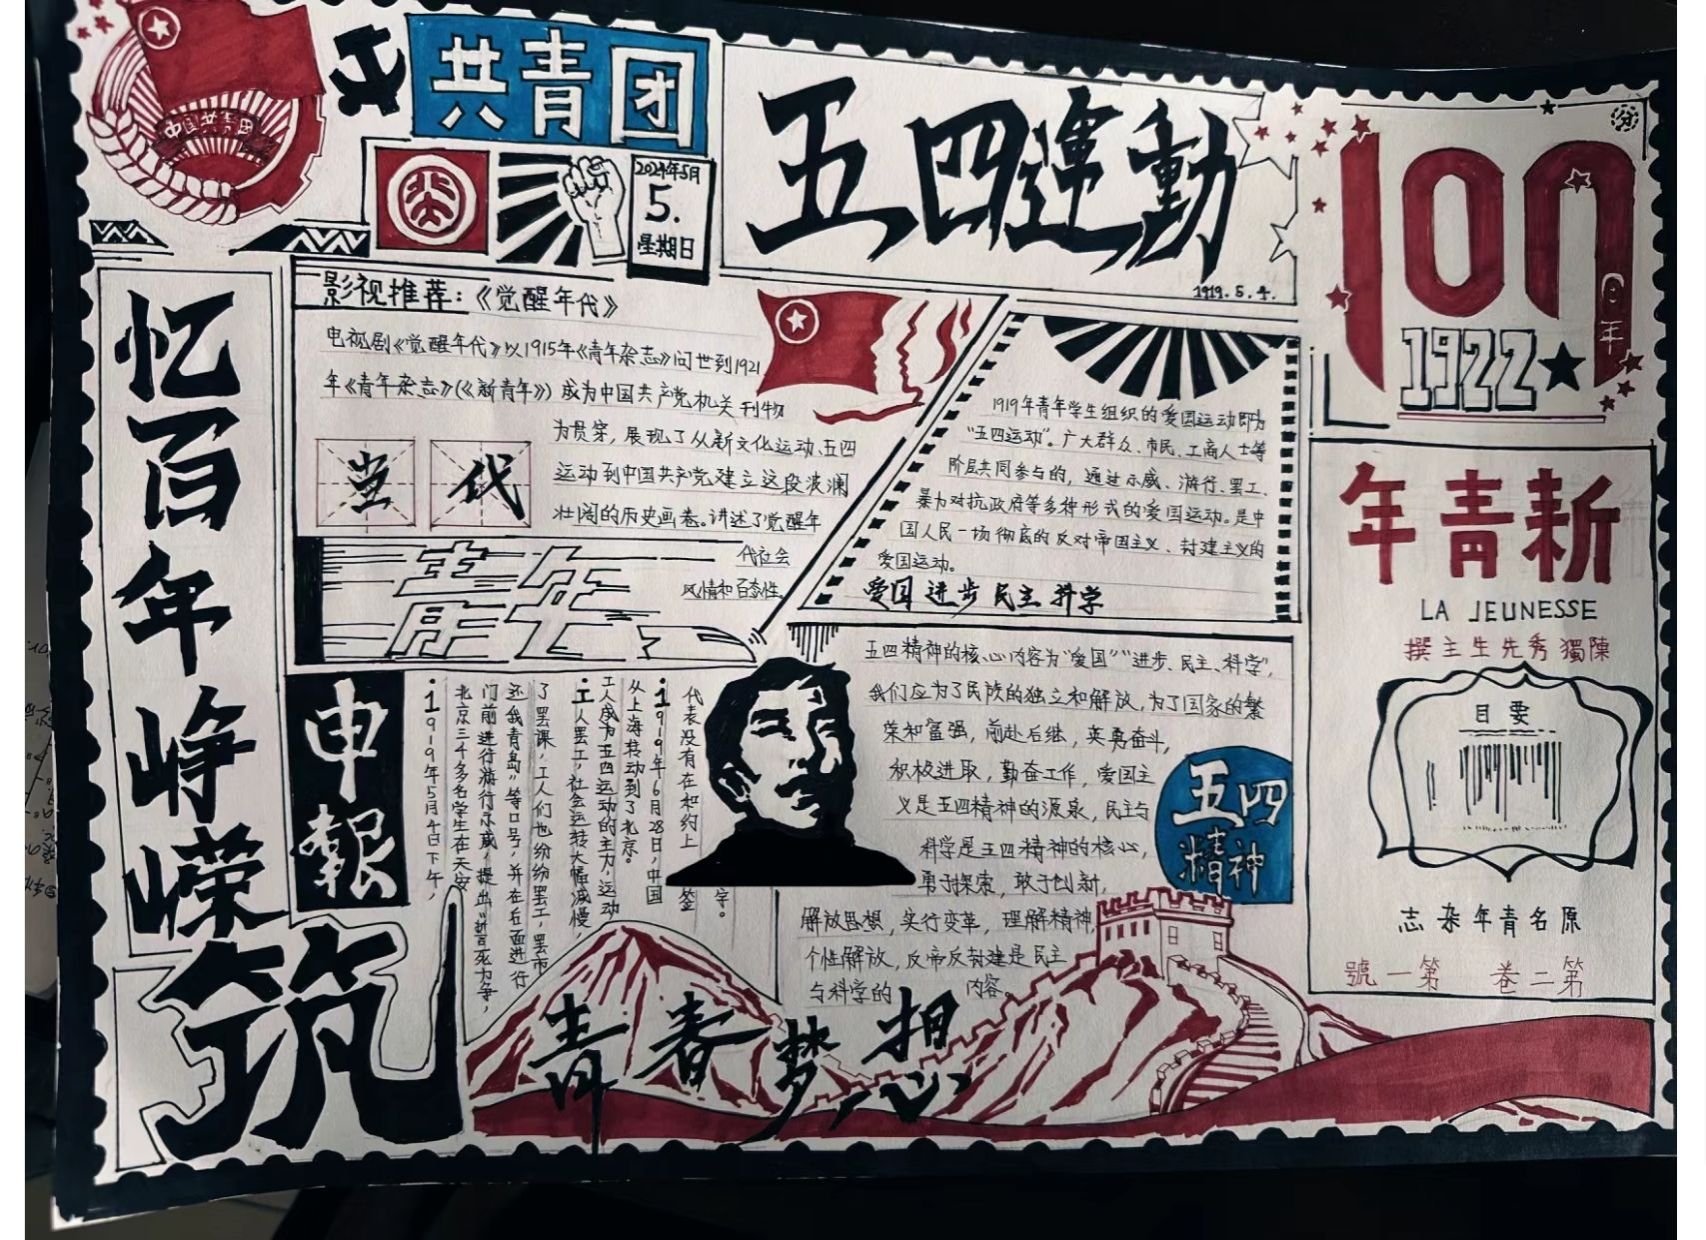 中国共青团
共青团
2024年5月
5.
星期日
五四運動
1919.5.4.
100
周年
1922
忆百年峥嵘
筑
青春梦想
影视推荐：《觉醒年代》
电视剧《觉醒年代》以1915年《青年杂志》问世到1921
年《青年杂志》(《新青年》) 成为中国共产党机关刊物
为贯穿，展现了从新文化运动、五四
运动到中国共产党建立这段波澜
壮阔的历史画卷。讲述了觉醒年
代社会
风情和百态性。
当代
青年
1919年青年学生组织的爱国运动即为
“五四运动”。广大群众、市民、工商人士等
阶层共同参与的，通过示威、游行、罢工、
暴力对抗政府等多种形式的爱国运动。是中
国人民一场彻底的反对帝国主义、封建主义的
爱国运动。
爱国 进步 民主 科学
年青新
LA JEUNESSE
撰主生先秀獨陳
目要
志杂年青名原
號一第 卷二第
申報
·1919年5月4日下午，
北京三千多名学生在天安
门前进行游行示威，提出“誓死力争，
还我青岛”等口号，并在后面进行
了罢课，工人们也纷纷罢工，罢市
·工人罢工，社会运转大幅减慢，
工人成为五四运动的主力，运动
从上海转动到了北京。
·1919年6月28日，中国
代表没有在和约上签
字。
五四精神的核心内容为“爱国”“进步、民主、科学”，
我们应为了民族的独立和解放，为了国家的繁
荣和富强，前赴后继，英勇奋斗，
积极进取，勤奋工作，爱国主
义是五四精神的源泉，民主与
科学是五四精神的核心，
勇于探索，敢于创新，
解放思想，实行变革，理解精神，
个性解放，反帝反封建是民主
与科学的 内容。
五四
精神